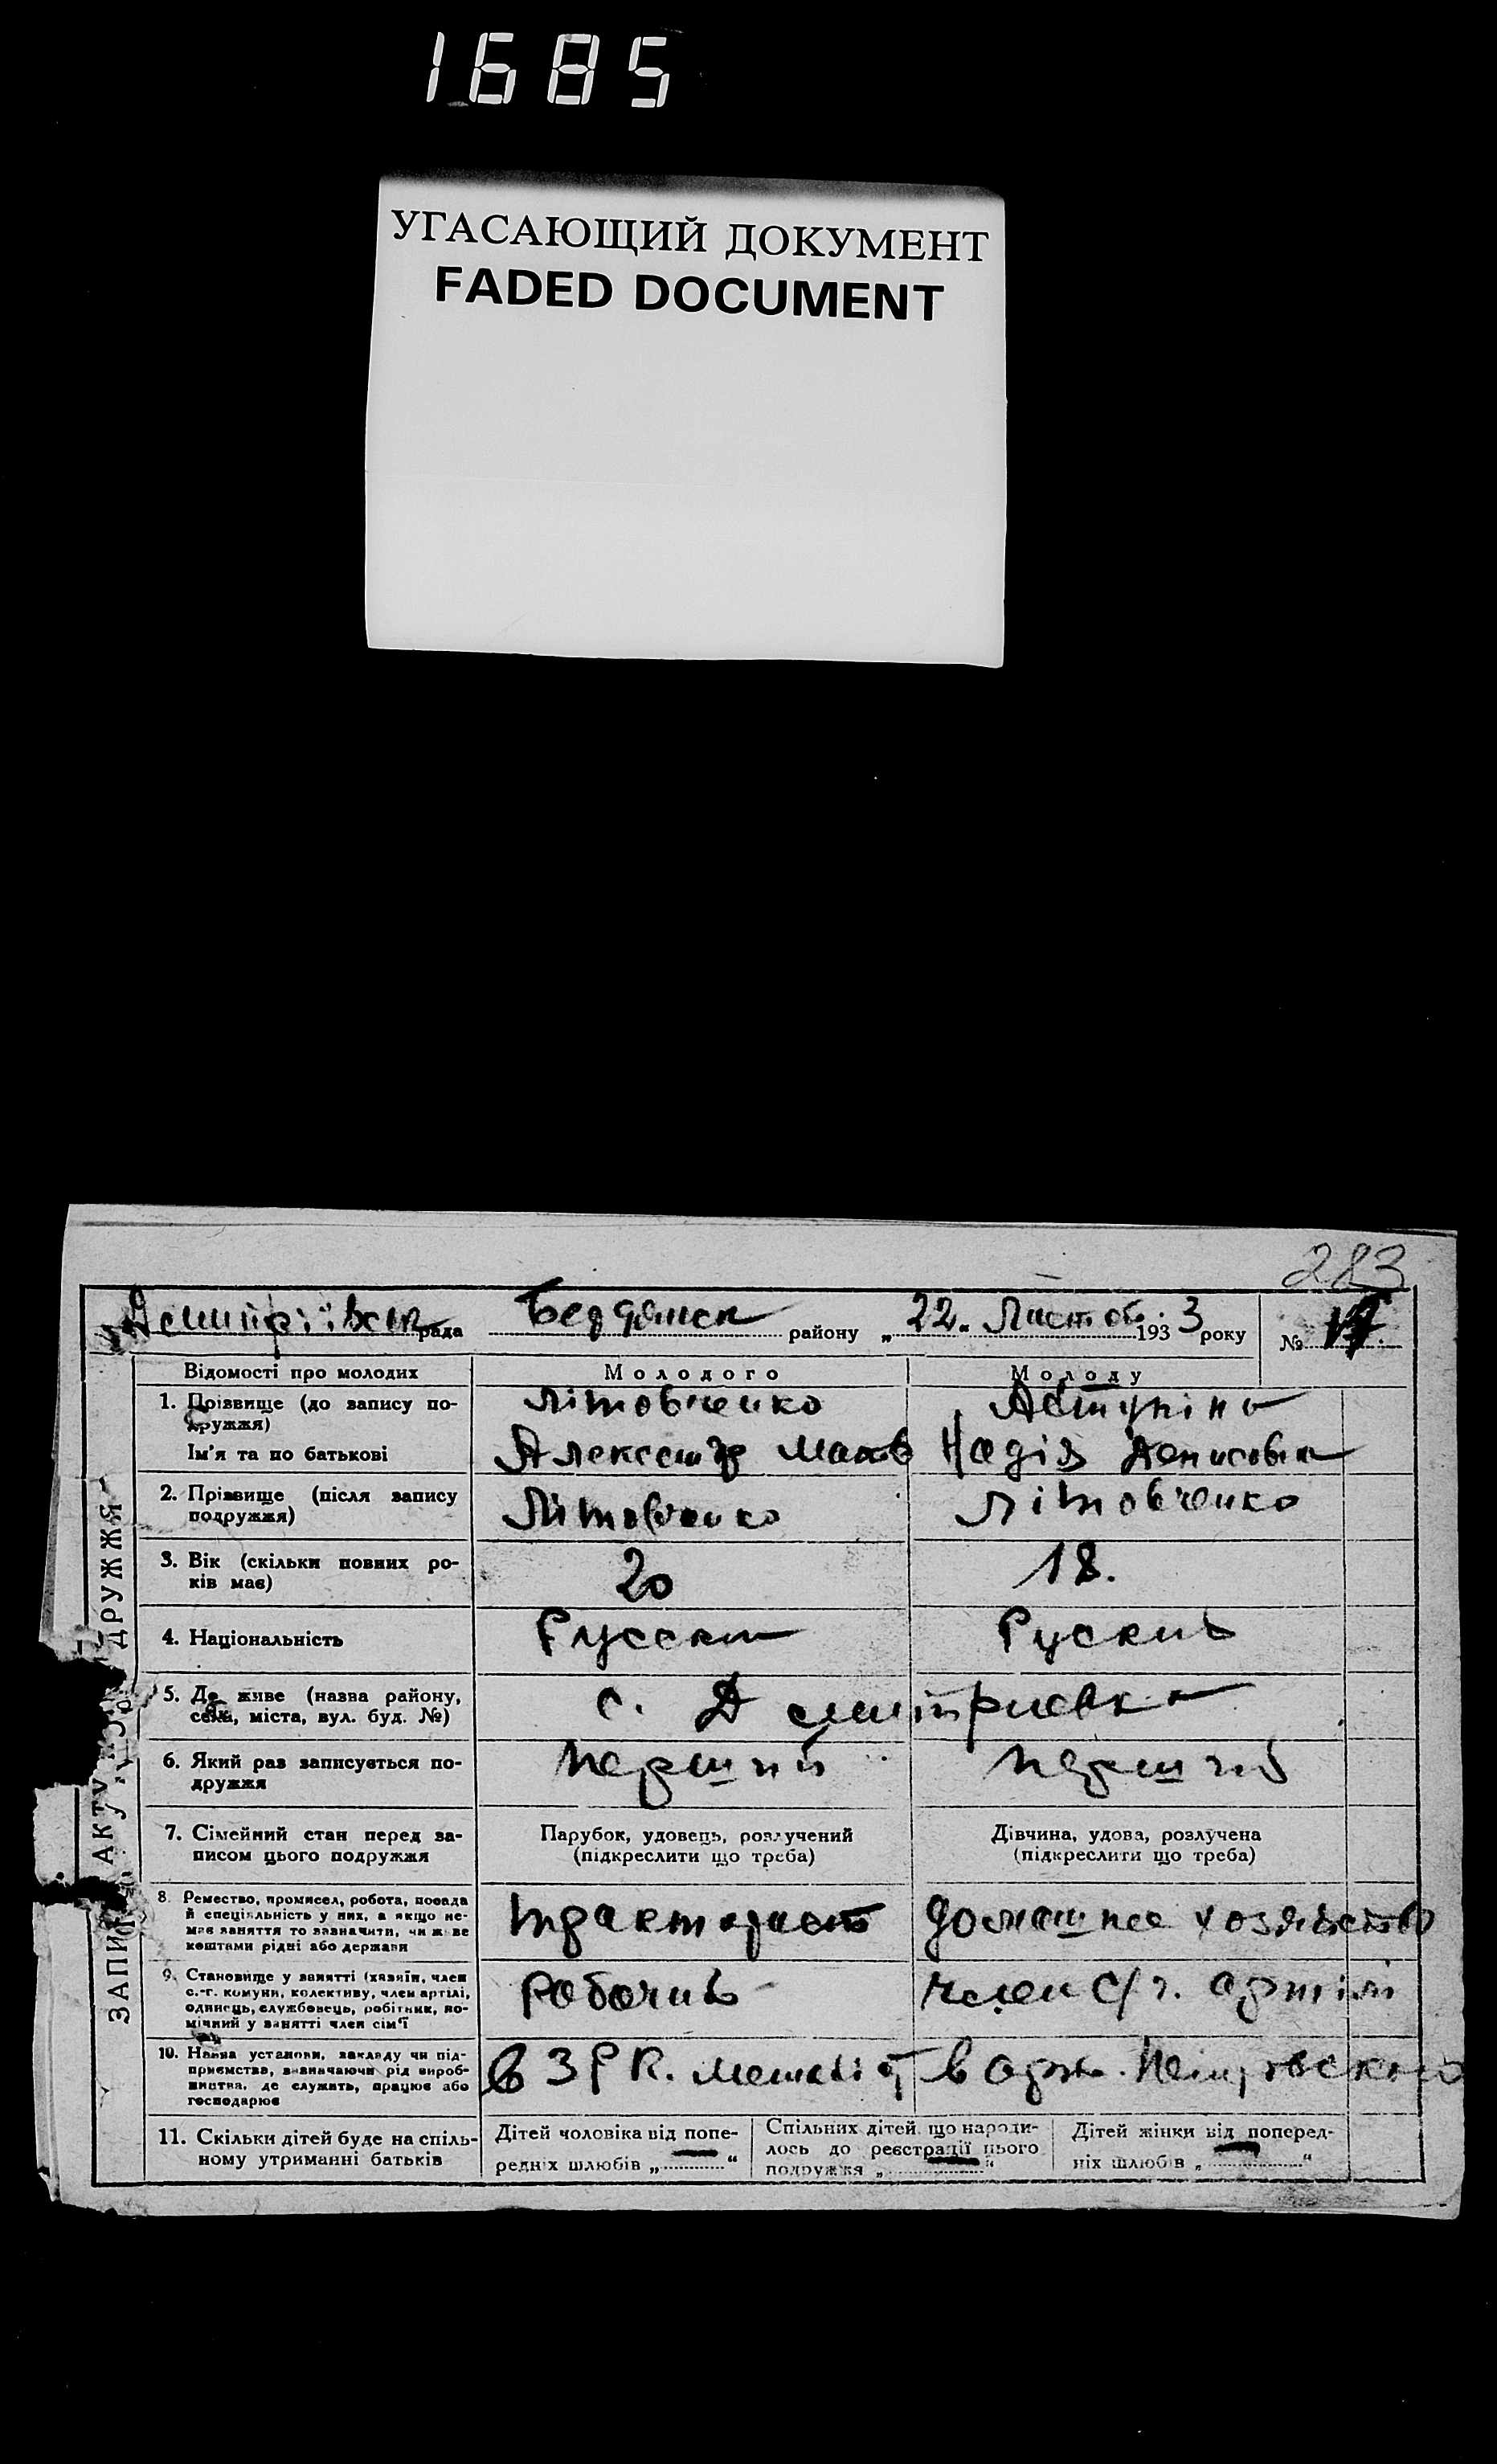 1685
УГАСАЮЩИЙ ДОКУМЕНТ
FADED DOCUMENT
283
Дмитріївськ рада Бердянск району „ 22. Листоб. 193 3 року №
Відомості про молодих Молодого Молоду
1. Прізвище (до запису по-
дружжя) Літовченко
Ім'я та по батькові Александр Надія Денисовна
2. Прізвище (після запису
подружжя) Літовченко Літовченко
3. Вік (скільки повних ро-
ків має) 20 18.
4. Національність Русский Руский
5. Де живе (назва району,
села, міста, вул. буд. №) с. Дмитриевка
6. Який раз записується по-
дружжя перший перший
7. Сімейний стан перед за-
писом цього подружжя
Парубок, удовець, розлучений
(підкреслити що треба)
Дівчина, удова, розлучена
(підкреслити що треба)
8. Ремество, промисел, робота, посада
й спеціяльність у них, а якщо не-
має заняття то зазначити, чи живе
коштами рідні або держави
тракторист домашнее хозяйство
9. Становище у занятті (хазяїн, член
с.-г. комуни, колективу, член артілі,
одинець, службовець, робітник, по-
мічний у занятті член сім'ї
рабочий член с/г. артілі
10. Назва установи, закладу чи під-
приємства, визначаючи рід вироб-
ництва, де служить, працює або
господарює
в арт. Петровского
11. Скільки дітей буде на спіль-
ному утриманні батьків
Дітей чоловіка від попе-
редніх шлюбів „ — “
Спільних дітей, що народи-
лось до реєстрації цього
подружжя „ — “
Дітей жінки від поперед-
ніх шлюбів „ — “
ЗАПИС АКТУ ДРУЖЖЯ